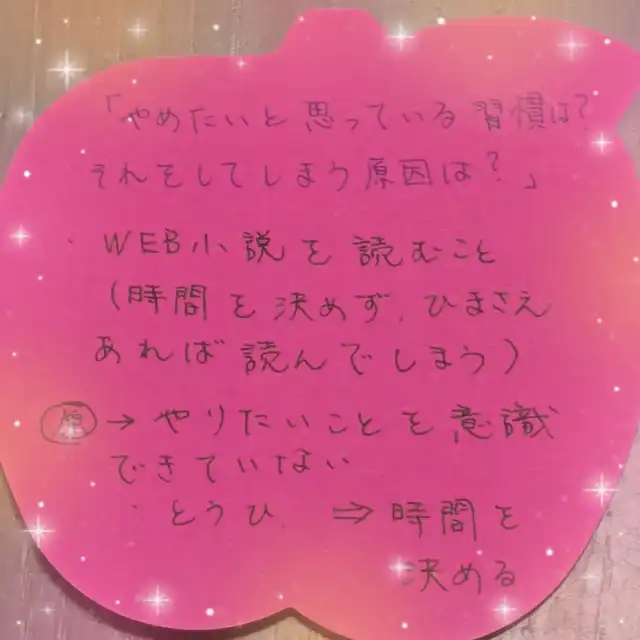 「やめたいと思っている習慣は?
それをしてしまう原因は?」
・WEB小説を読むこと
(時間を決めず、ひまさえ
あれば読んでしまう)
原→やりたいことを意識
できていない
・とうひ ⇒時間を
決める